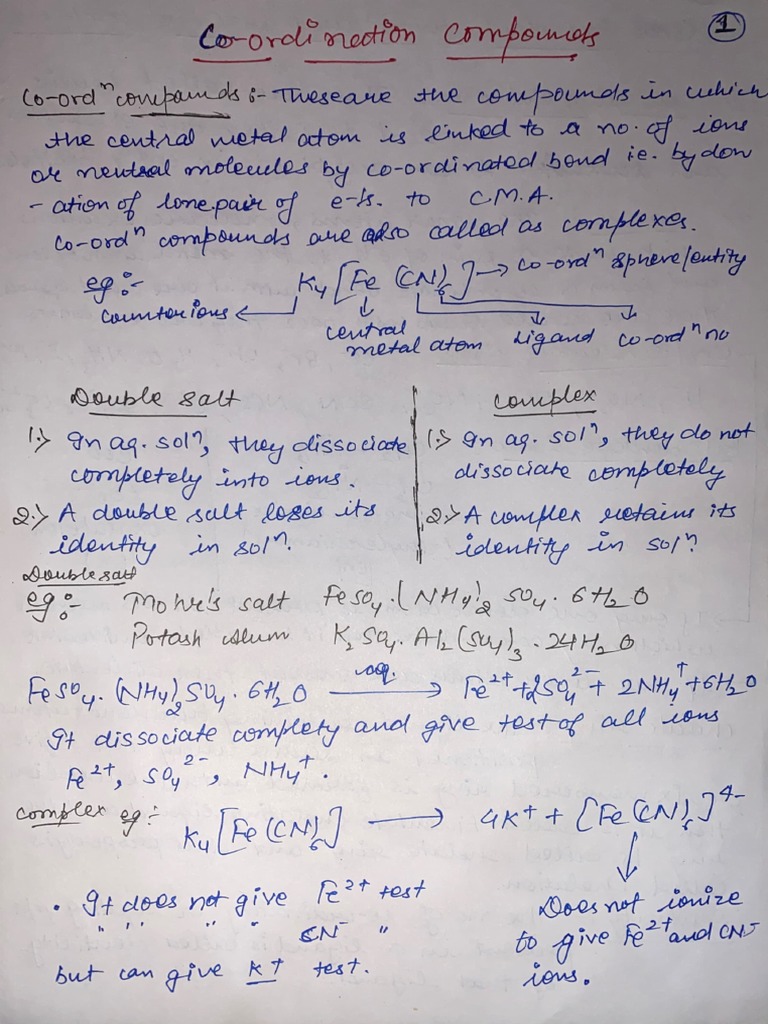 Co-ordination Compounds
1
Co-ordⁿ compounds :- These are the compounds in which
the central metal atom is linked to a no. of ions
or neutral molecules by co-ordinated bond ie. by don
-ation of lone pair of e-1s. to C.M.A.
Co-ordⁿ compounds are also called as complexes.
eg :- K₄[Fe(CN)₆] → Co-ordⁿ sphere/entity
counter ions ←
central metal atom
Ligand
co-ordⁿ no
Double salt
1.) In aq. solⁿ, they dissociate
completely into ions.
2.) A double salt loses its
identity in solⁿ.
complex
1.) In aq. solⁿ, they do not
dissociate completely
2.) A complex retains its
identity in solⁿ.
Double salt
eg :- Mohr's salt FeSO₄.(NH₄)₂SO₄.6H₂O
Potash Alum K₂SO₄.Al₂(SO₄)₃.24H₂O
FeSO₄.(NH₄)₂SO₄.6H₂O —aq.→ Fe²⁺+2SO₄²⁻+2NH₄⁺+6H₂O
It dissociate complety and give test of all ions
Fe²⁺, SO₄²⁻, NH₄⁺.
complex eg :- K₄[Fe(CN)₆] → 4K⁺ + [Fe(CN)₆]⁴⁻
• It does not give Fe²⁺ test
" " " " CN⁻ "
but can give K⁺ test.
Does not ionize
to give Fe²⁺ and CN⁻
ions.